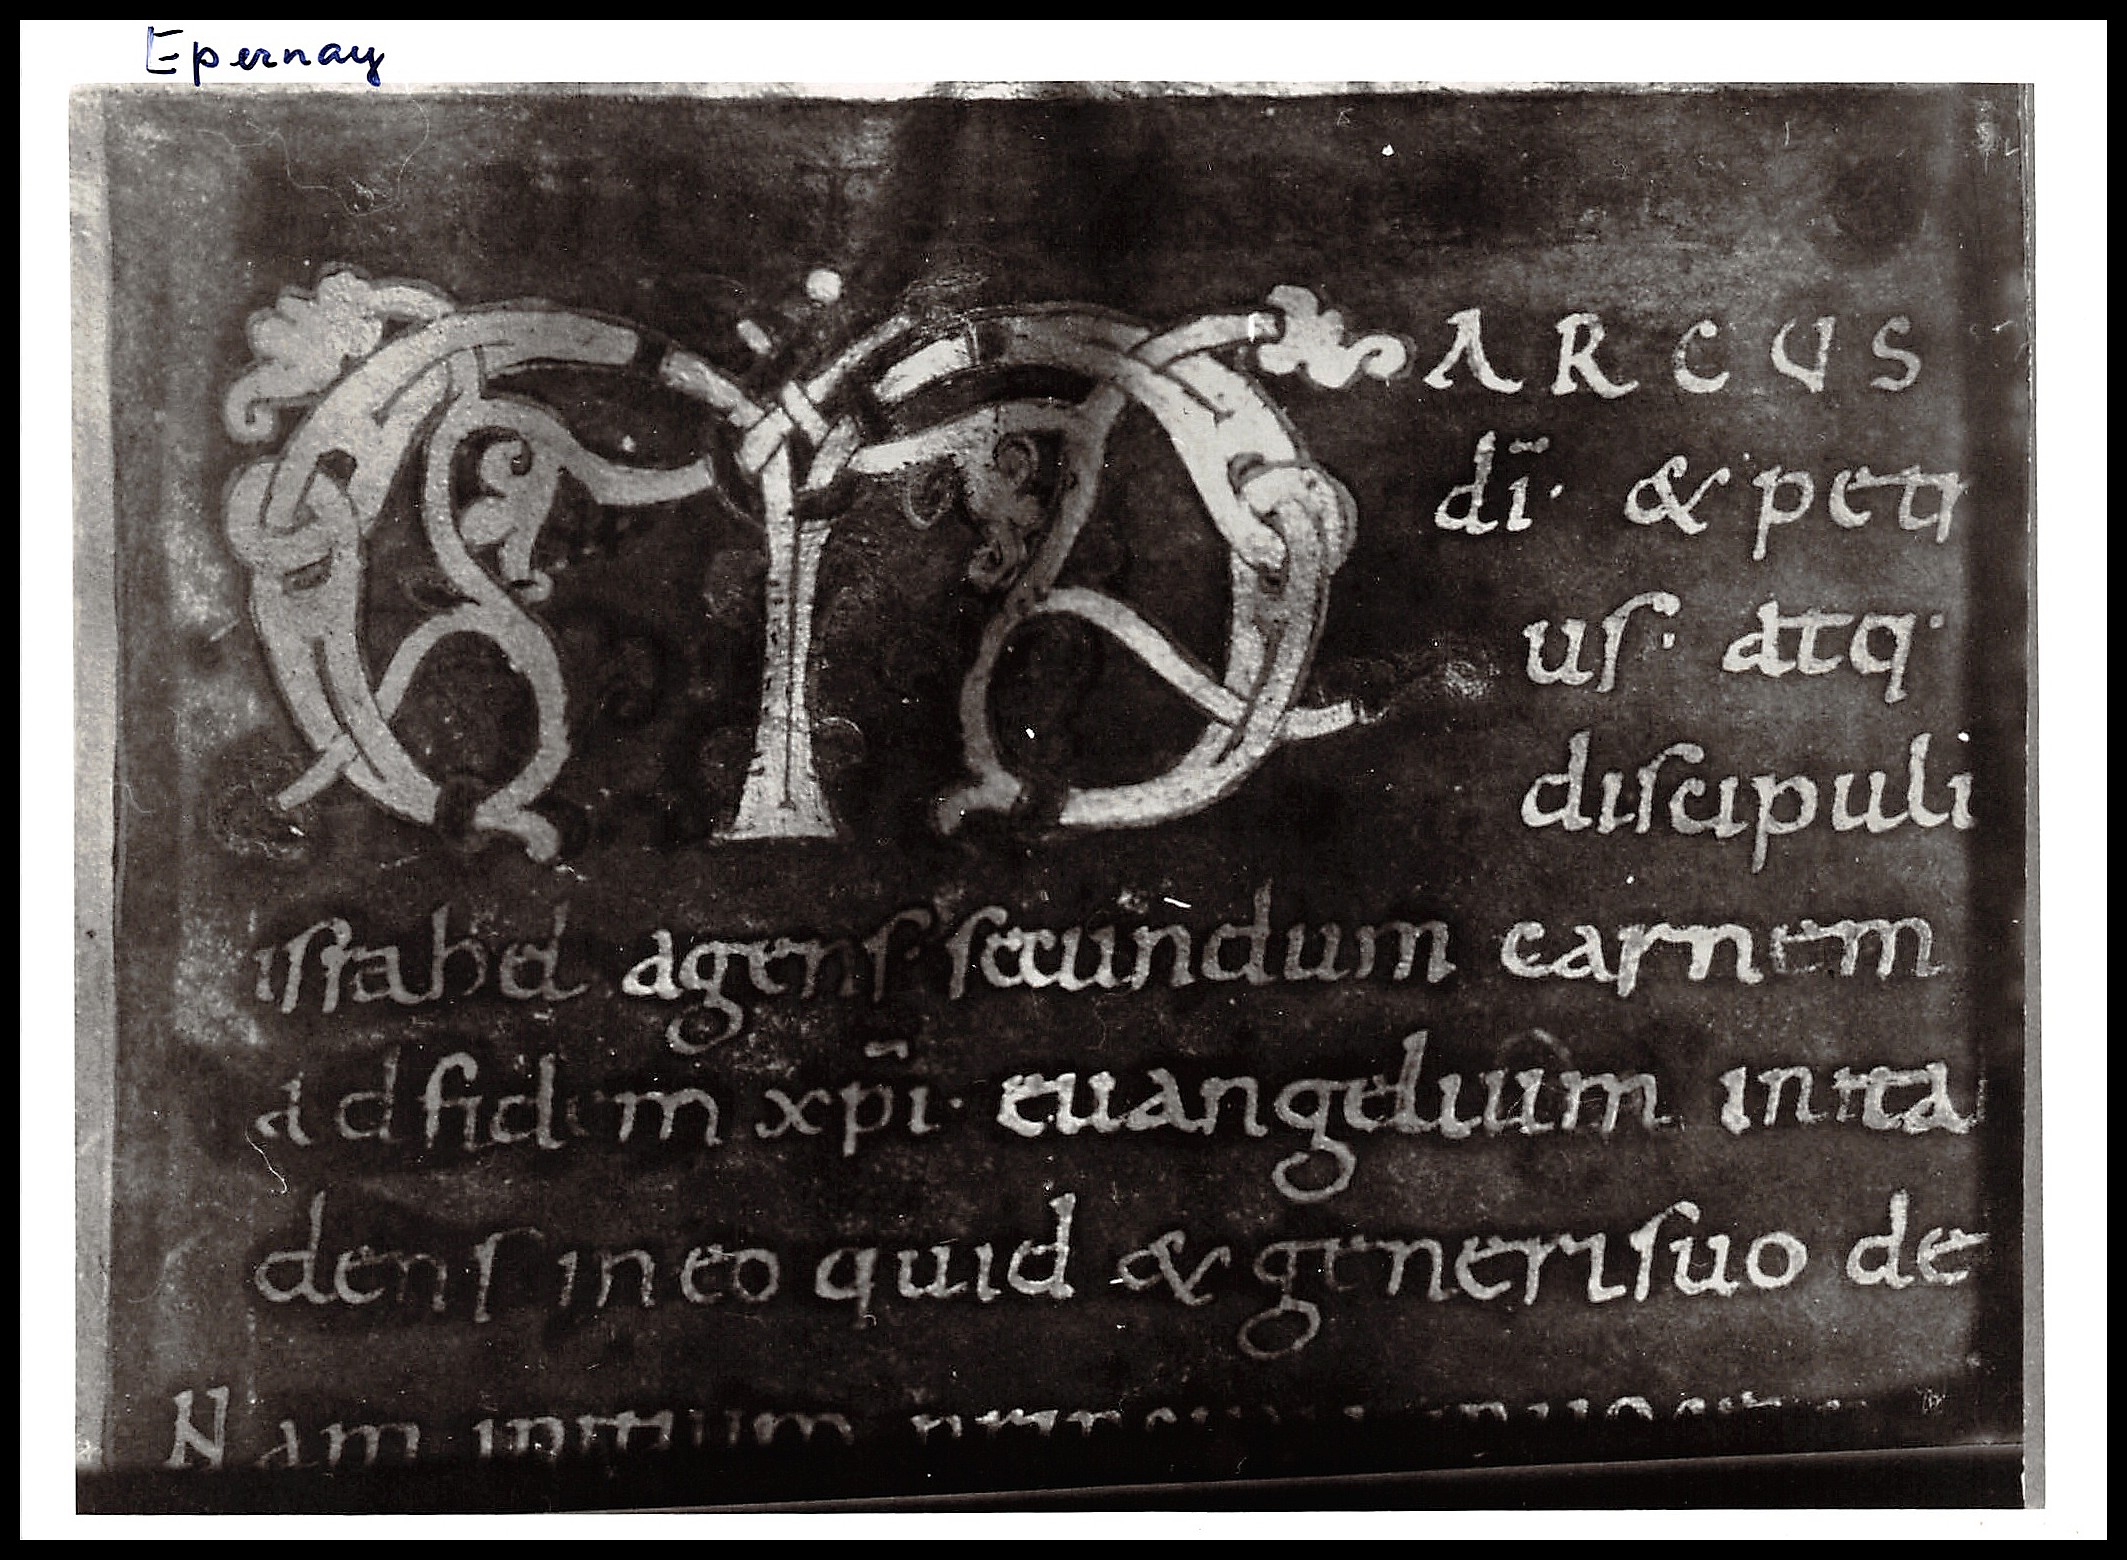 Epernay
MARCUS
dī· & petr
us· atq·
discipuli
issrahel agens· secundum carnem
ad fidem xp̄i· euangelium in ita
dens in eo quid & generi suo de
Nam initium